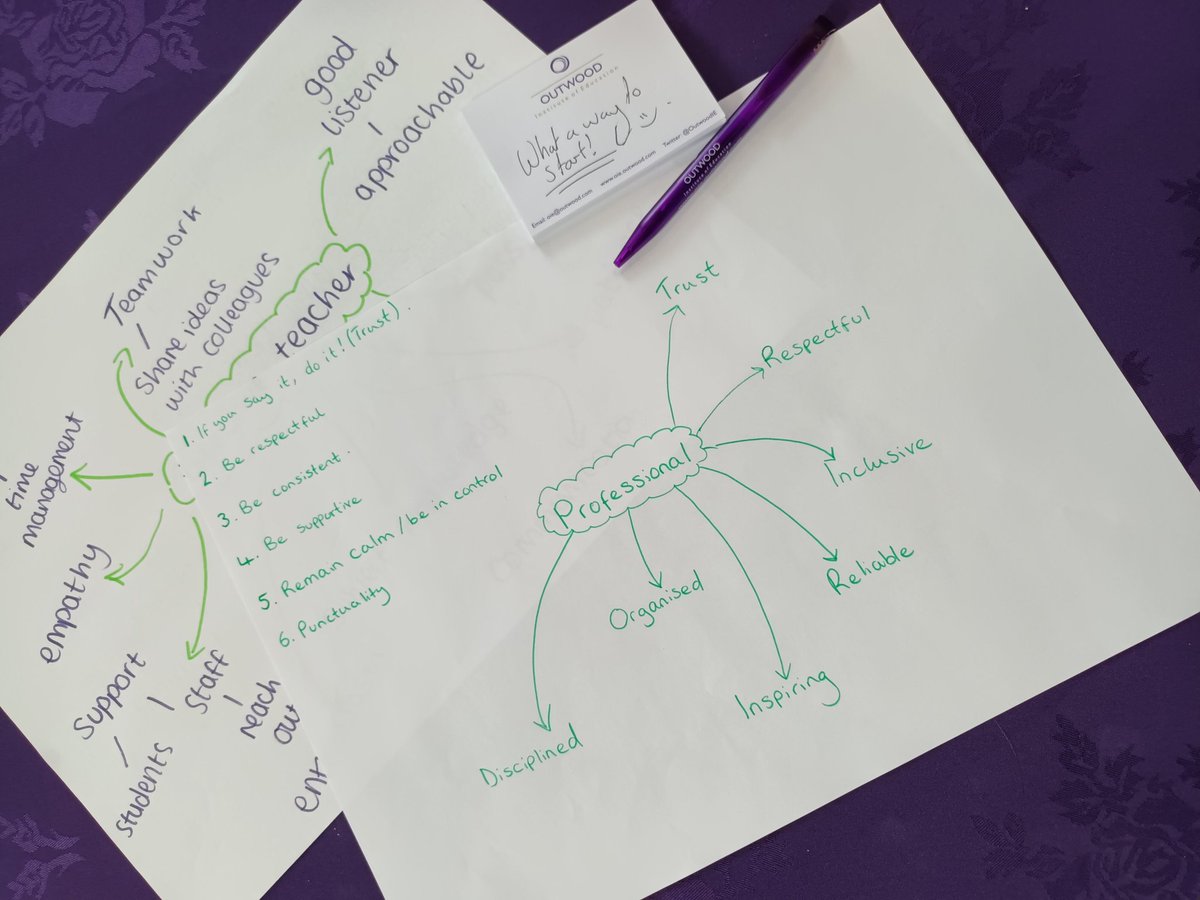 good
listener
approachable
Teamwork
Share ideas
with colleagues
teacher
time
management
empathy
Support
students
Staff
reach
out
OUTWOOD
Institute of Education
What a way to
start!
Email: oie@outwood.com www.oie.outwood.com Twitter: @OutwoodIE
OUTWOOD
Institute of Education
1. If you say it, do it! (Trust).
2. Be respectful
3. Be consistent.
4. Be supportive
5. Remain calm / be in control
6. Punctuality
Professional
Trust
Respectful
Inclusive
Reliable
Inspiring
Organised
Disciplined